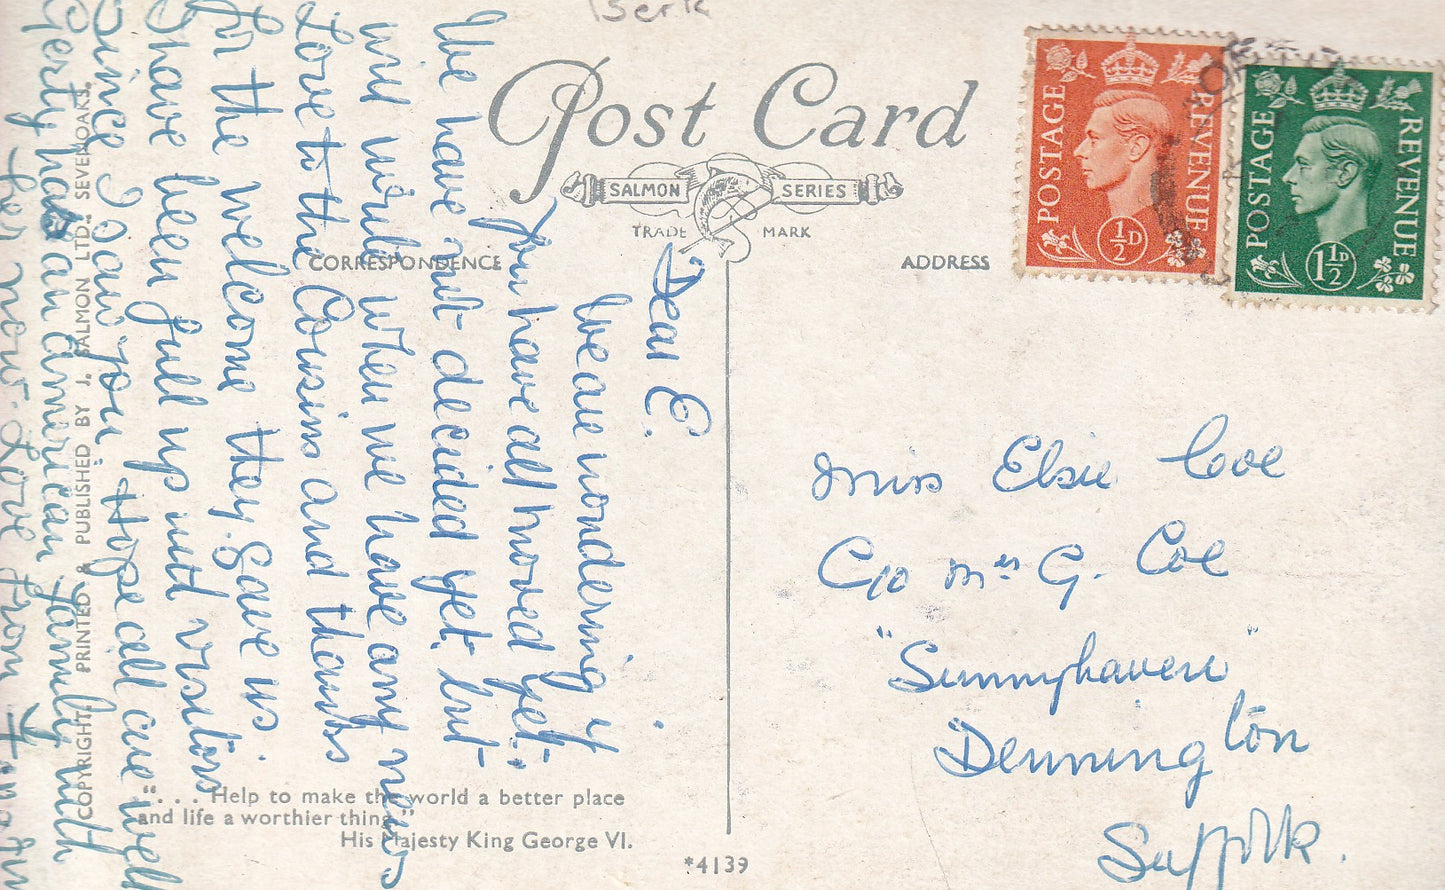 Post Card
SALMON SERIES
TRADE MARK
CORRESPONDENCE
ADDRESS
POSTAGE REVENUE
½D
POSTAGE REVENUE
1½D
Dear E.
We are wondering if
you have all moved yet.
We have not decided yet, but
will write when we have any news
Love to the Cousins and thanks
for the welcome they gave us
I have been full up with visitors
since I saw you Hope all are well
Gerty has an American family with
her now. Love from
Miss Elsie Coe
C/o Mrs G. Coe
"Sunnyhaven"
Dennington
Suffolk.
COPYRIGHT. PRINTED & PUBLISHED BY J. SALMON LTD., SEVENOAKS.
". . . Help to make the world a better place
and life a worthier thing."
His Majesty King George VI.
*4139